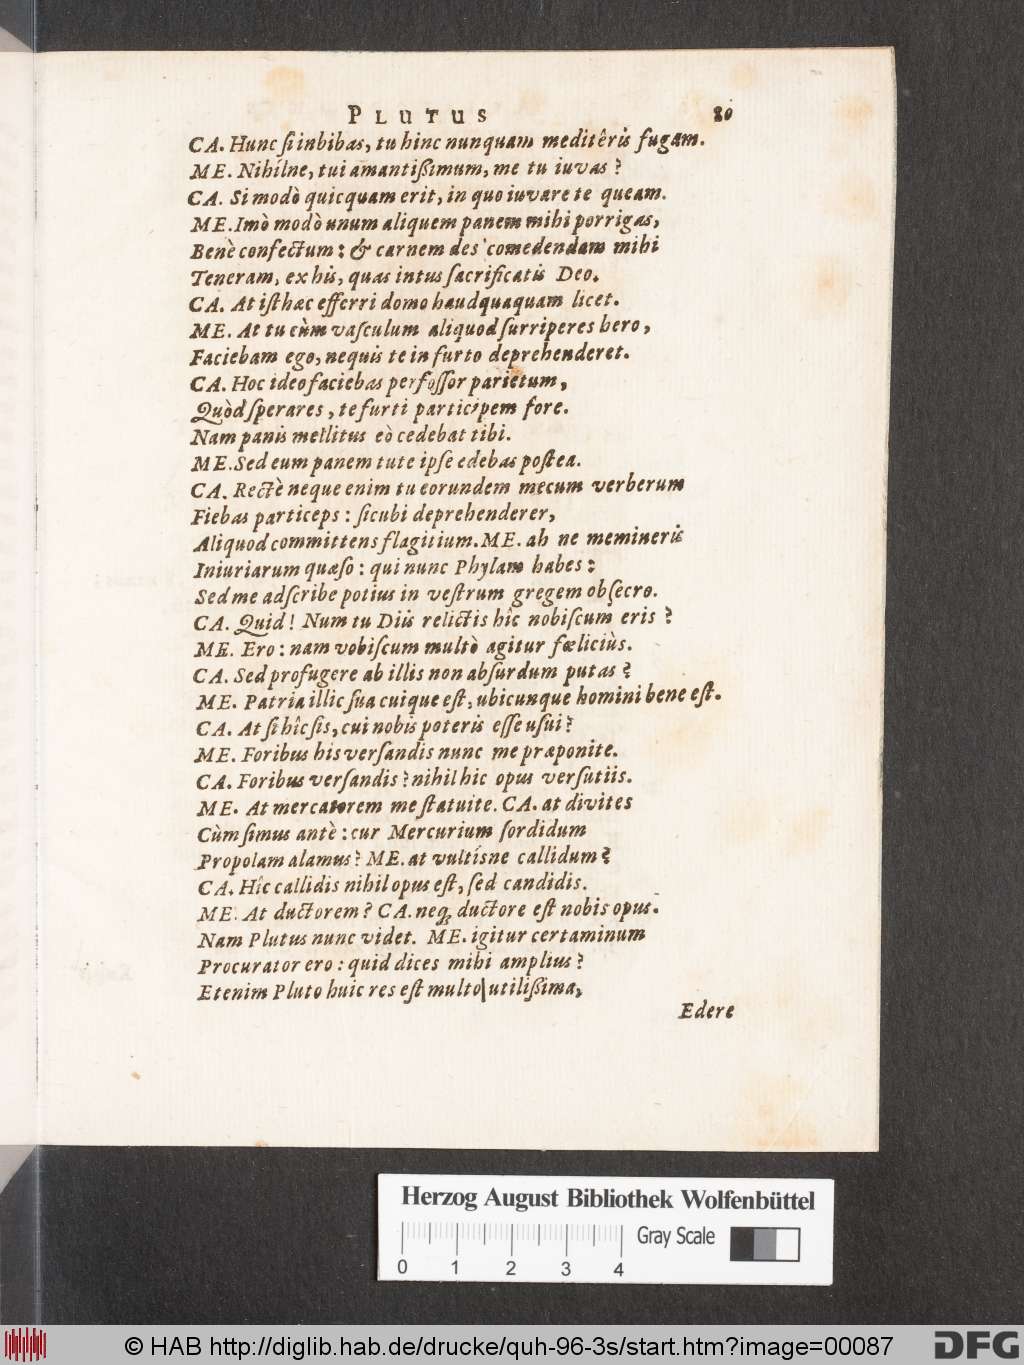 PLUTUS 80
CA. Hunc ſi inbibas, tu hinc nunquam meditêris fugam.
ME. Nihílne, tui amantißimum, me tu iuvas?
CA. Si modò quicquam erit, in quo iuvare te queam.
ME. Imò modò unum aliquem panem mihi porrigas,
Benè confectum: & carnem des comedendam mihi
Teneram, ex his, quas intus ſacrificatis Deo.
CA. At iſthæc efferri domo haudquaquam licet.
ME. At tu cùm vaſculum aliquod ſurriperes hero,
Faciebam ego, nequis te in furto deprehenderet.
CA. Hoc ideo faciebas perfoſſor parietum,
Quòd ſperares, te furti participem fore.
Nam panis mellitus eò cedebat tibi.
ME. Sed eum panem tute ipſe edebas poſtea.
CA. Rectè neque enim tu eorundem mecum verberum
Fiebas particeps: ſicubi deprehenderer,
Aliquod committens flagitium. ME. ah ne memineris
Iniuriarum quæſo: qui nunc Phylam habes:
Sed me adſcribe potius in veſtrum gregem obſecro.
CA. Quid! Num tu Diis relictis hîc nobiſcum eris?
ME. Ero: nam vobiſcum multò agitur fœliciùs.
CA. Sed profugere ab illis non abſurdum putas?
ME. Patria illic ſua cuique eſt, ubicunque homini bene eſt.
CA. At ſi hîc ſis, cui nobis poteris eſſe uſui?
ME. Foribus his verſandis nunc me præponite.
CA. Foribus verſandis? nihil hic opus verſutiis.
ME. At mercatorem me ſtatuite. CA. at divites
Cùm ſimus antè: cur Mercurium ſordidum
Propolam alamus? ME. at vultísne callidum?
CA. Hîc callidis nihil opus eſt, ſed candidis.
ME. At ductorem? CA. neq; ductore eſt nobis opus.
Nam Plutus nunc videt. ME. igitur certaminum
Procurator ero: quid dices mihi amplius?
Etenim Pluto huic res eſt multo utilißima,
Edere
Herzog August Bibliothek Wolfenbüttel
Gray Scale
0 1 2 3 4
© HAB http://diglib.hab.de/drucke/quh-96-3s/start.htm?image=00087
DFG